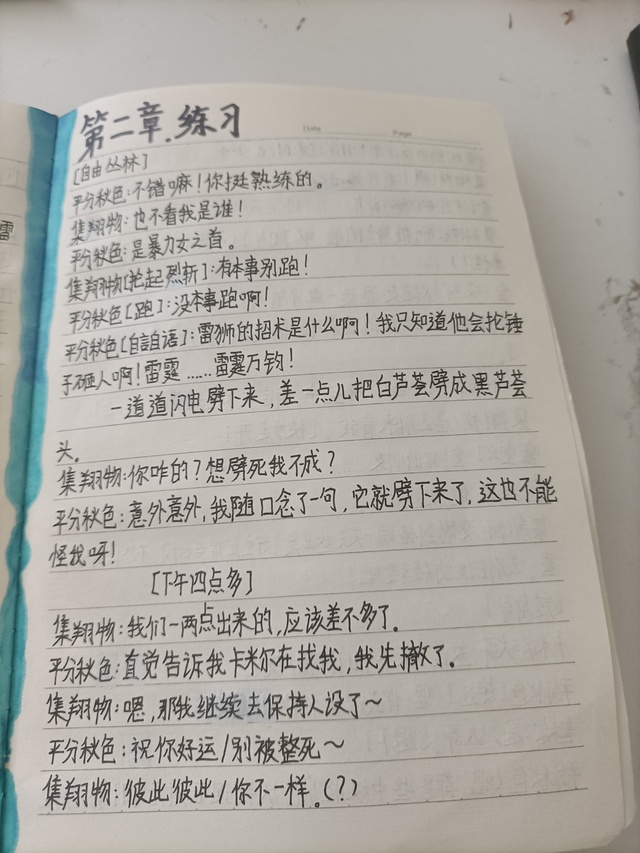 Date
Page
第二章.练习
[自由丛林]
平分秋色:不错嘛!你挺熟练的。
集翔物:也不看我是谁!
平分秋色:是暴力女之首。
集翔物[抡起烈斩]:有本事别跑!
平分秋色[跑]:没本事跑啊!
平分秋色[自言自语]:雷狮的招术是什么啊!我只知道他会抡锤
子砸人啊!雷霆……雷霆万钧!
一道道闪电劈下来,差一点儿把白芦荟劈成黑芦荟
头。
集翔物:你咋的?想劈死我不成?
平分秋色:意外意外,我随口念了一句,它就劈下来了,这也不能
怪我呀!
[下午四点多]
集翔物:我们一两点出来的,应该差不多了。
平分秋色:直觉告诉我卡米尔在找我,我先撤了。
集翔物:嗯,那我继续去保持人设了~
平分秋色:祝你好运/别被整死~
集翔物:彼此彼此/你不一样。(?)
雷